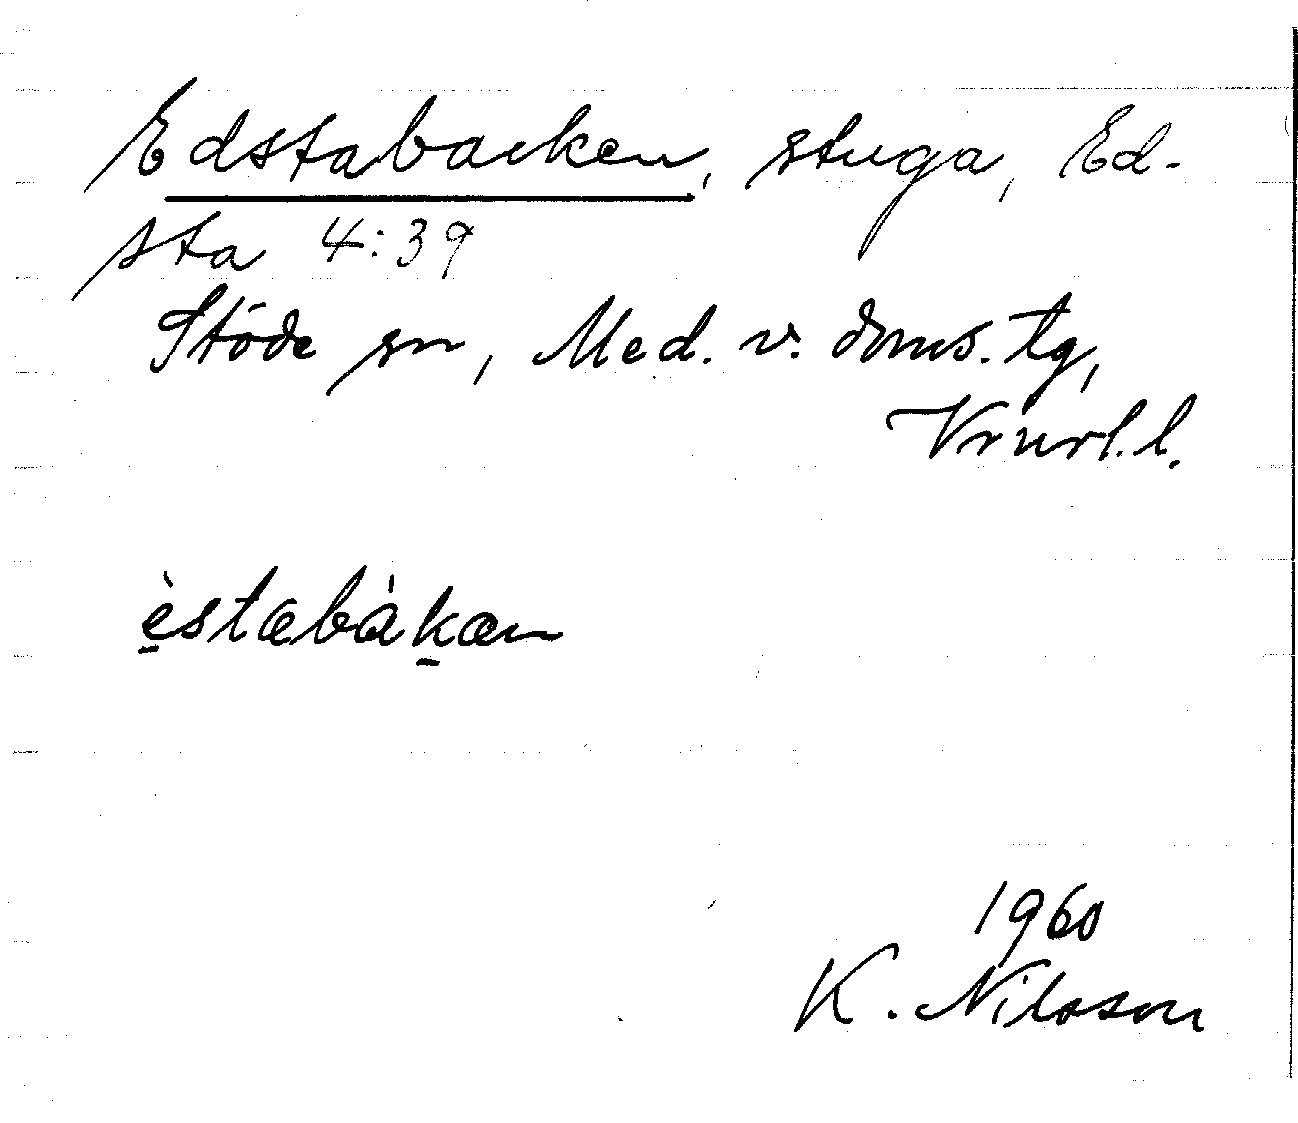 Edstabacken, stuga, Ed-
sta 4:39
Stöde sn, Med. v. doms. tg,
Vrnrl. l.
èstabàkan
1960
K. Nilsson